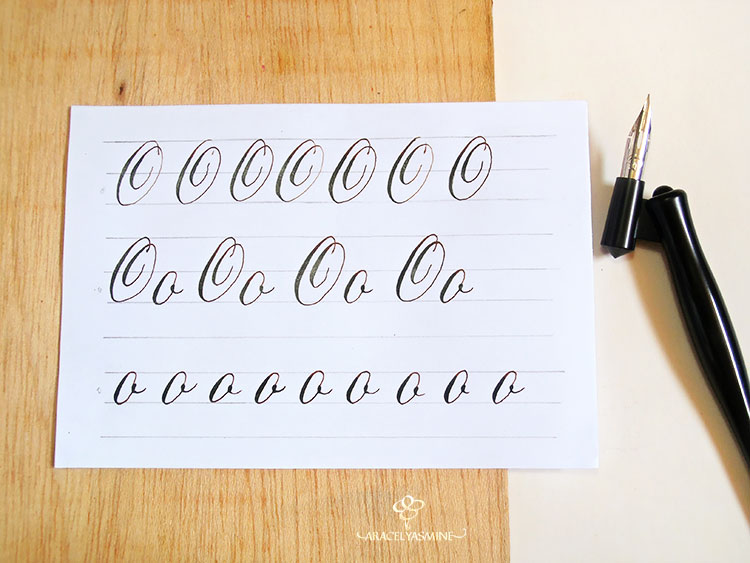 O O O O O O O
Oo Oo Oo Oo
o o o o o o o o o
ARACELYASMINE